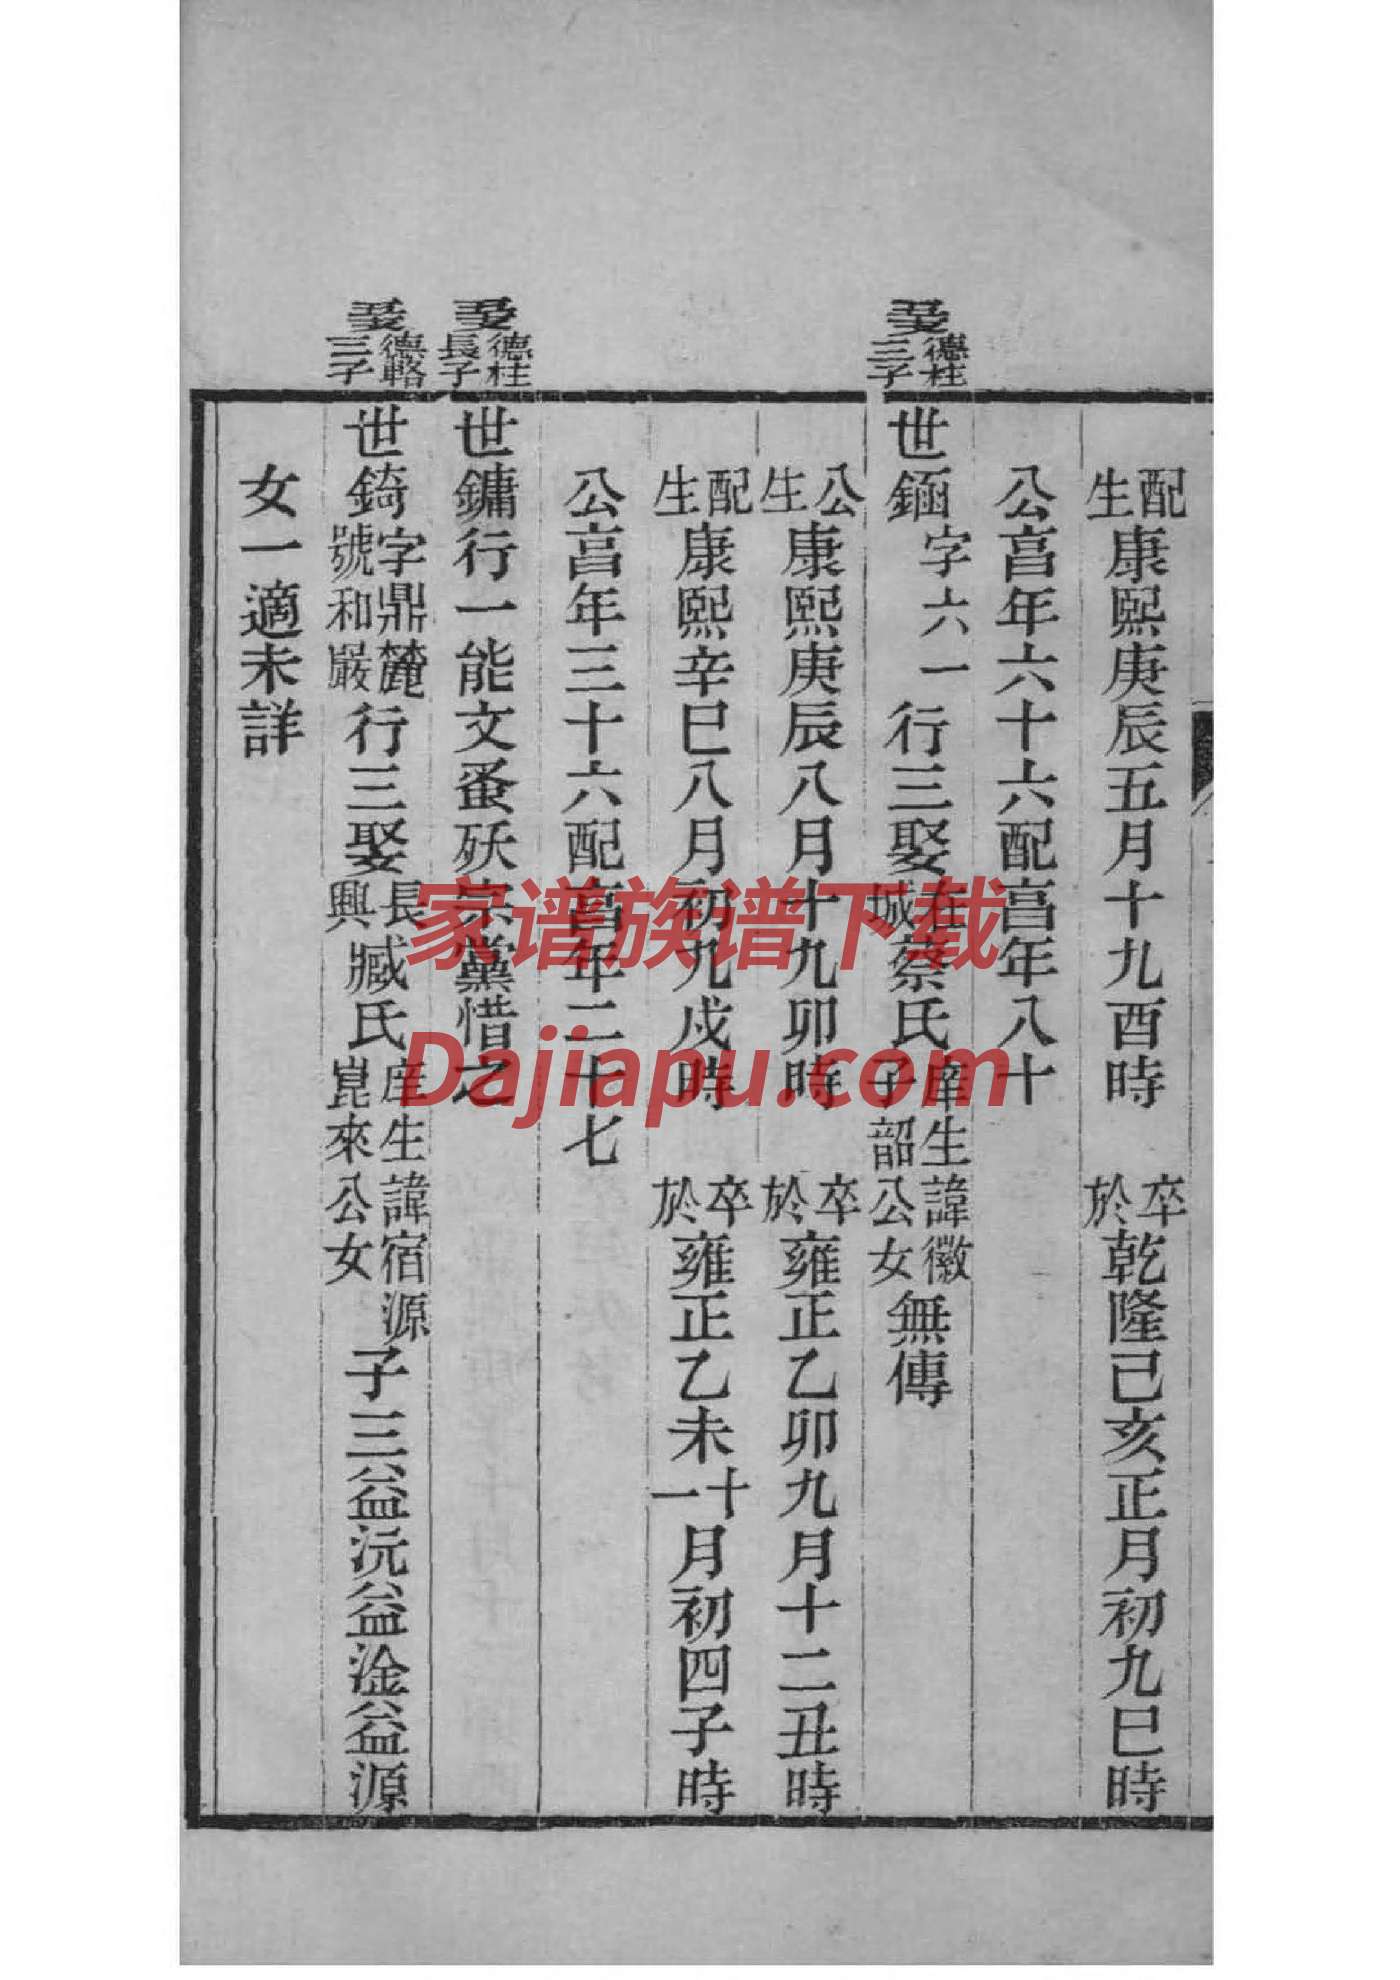 配生康熙庚辰五月十九酉時　卒於乾隆己亥正月初九巳時
公亯年六十六配亯年八十
德柱三子
世鋿字六一行三娶城蔡氏庠生諱徽子韶公女無傳
公生康熙庚辰八月十九卯時　卒於雍正乙卯九月十二丑時
配生康熙辛巳八月初九戌時　卒於雍正乙未十一月初四子時
公亯年三十六配亯年二十七
德柱長子
世鏞行一能文蚤殀宗黨惜之
德輅三子
世錡字鼎麓號和巖行三娶長興臧氏庠生諱宿源崑來公女子三益沅益淦益源
女一適未詳
家谱族谱下载
Dajiapu.com